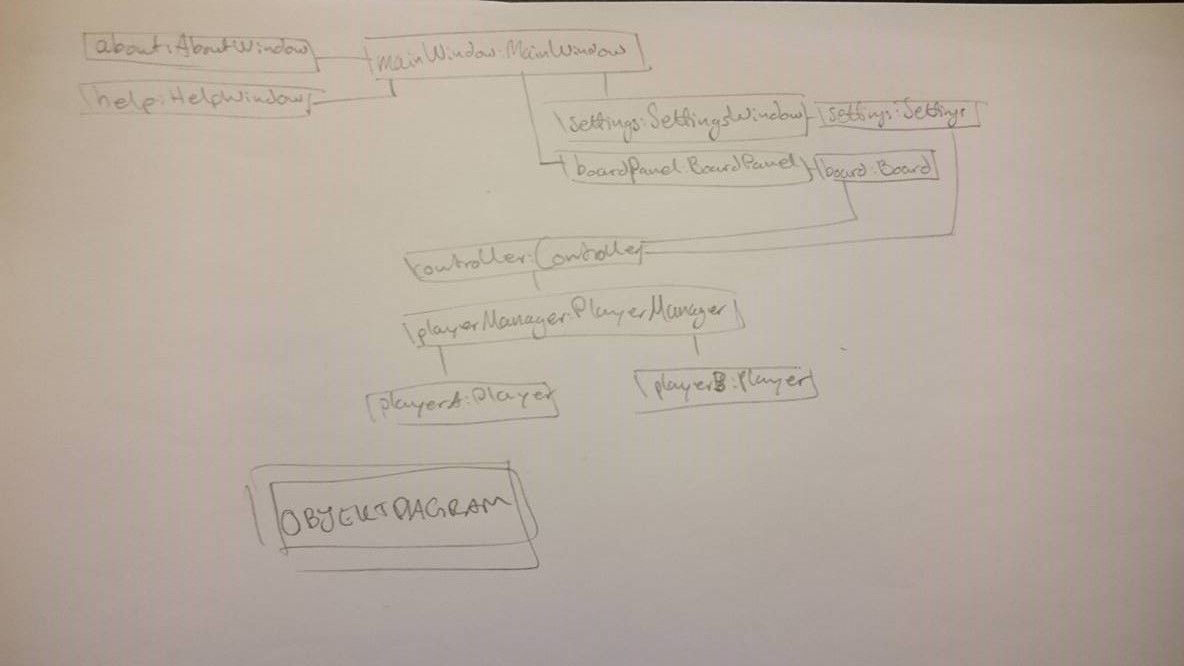 about:AboutWindow
mainWindow:MainWindow
help:HelpWindow
settings:SettingsWindow
settings:Settings
boardPanel:BoardPanel
board:Board
controller:Controller
playerManager:PlayerManager
playerA:Player
playerB:Player
OBJEKTDIAGRAM